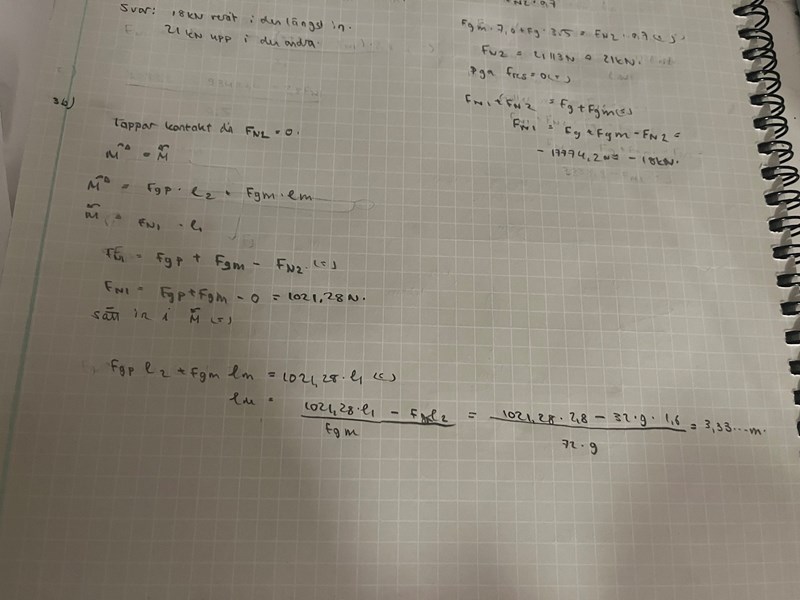 Svar: 18kN nedåt i den längst in.
21 kN upp i den andra.
Fgm · 7,0 + Fg · 3,5 = FN2 · 0,7 (=)
FN2 = 21113N ≈ 21kN.
pga Fres = 0 (=)
FN1 + FN2 = Fg + Fgm (=)
FN1 = Fg + Fgm - FN2 =
- 17774,2N ≈ - 18kN.
36)
Tappar kontakt då FN2 = 0.
M = M
M = Fgp · l2 + Fgm · lm
M = FN1 · l1
FN1 = Fgp + Fgm - FN2 (=)
FN1 = Fgp + Fgm - 0 = 1021,28N.
sätt in i M (=)
Fgp l2 + Fgm lm = 1021,28 · l1 (=)
lm = (1021,28 · l1 - l2) / Fgm = (1021,28 · 2,8 - 32 · g · 1,6) / (72 · g) = 3,33...m.